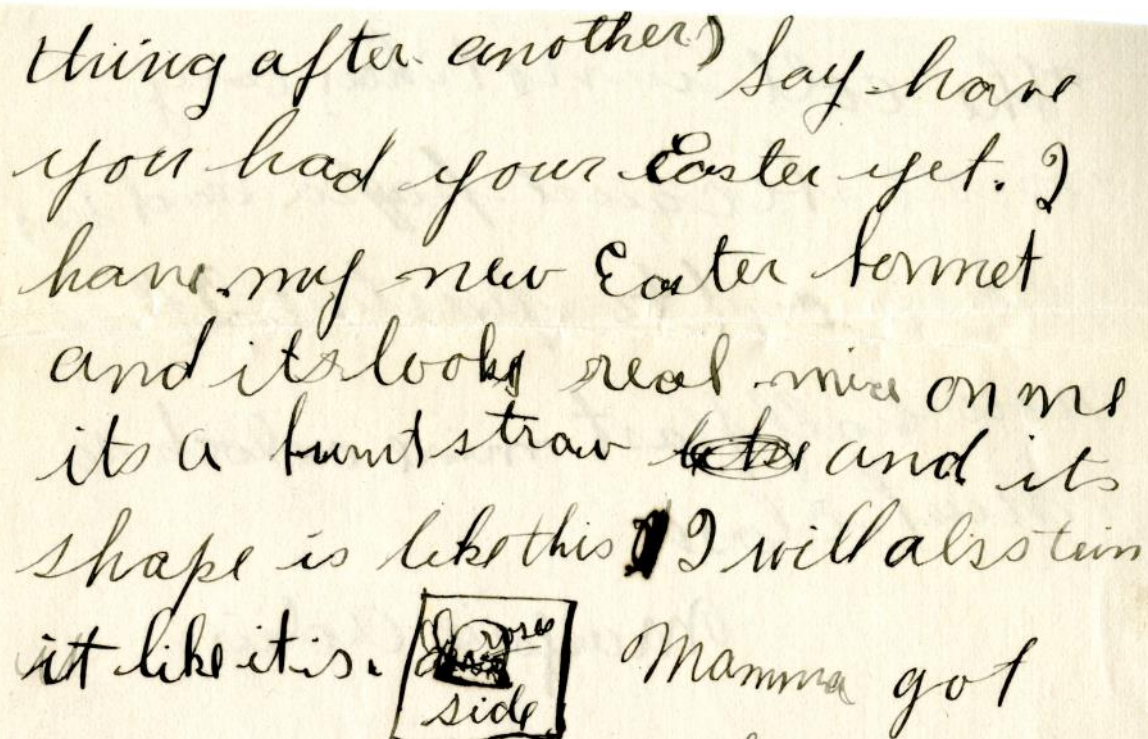 thing after another) Say have
you had your Easter yet. I
have my new Easter bonnet
and its looks real nice on me
its a burnt straw and its
shape is like this I will also trim
it like it is. roses side Mamma got